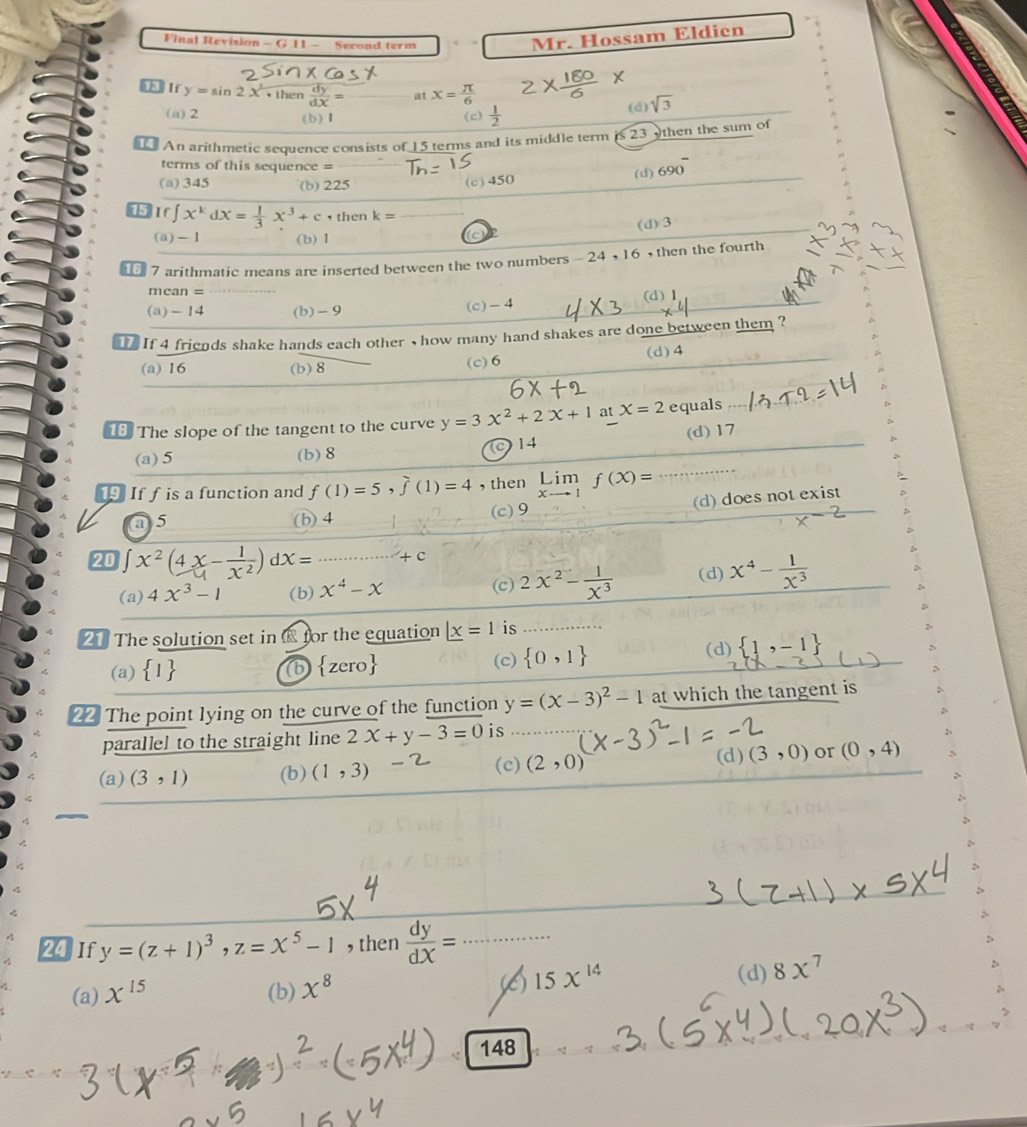 Final Revision - G 11 - Second term
Mr. Hossam Eldien
2 sin x cos x
13 If y = sin 2 x , then dy/dx = ............ at x = π/6
2 × 180/6 x
(a) 2 (b) 1 (c) 1/2 (d) √3
14 An arithmetic sequence consists of 15 terms and its middle term is 23 , then the sum of
terms of this sequence = ............
Tn = 15
(a) 345 (b) 225 (c) 450 (d) 690
15 If ∫ x^k dx = 1/3 x³ + c , then k = ............
(a) – 1 (b) 1 (c) 2 (d) 3
16 7 arithmatic means are inserted between the two numbers – 24 , 16 , then the fourth
mean = ............
(a) – 14 (b) – 9 (c) – 4 (d) 1
4 x 3
x 4
1 x 3
1 x 3
1 x 3
17 If 4 friends shake hands each other , how many hand shakes are done between them ?
(a) 16 (b) 8 (c) 6 (d) 4
6x + 2
18 The slope of the tangent to the curve y = 3 x² + 2 x + 1 at x = 2 equals ............
+2 = 14
(a) 5 (b) 8 (c) 14 (d) 17
19 If f is a function and f (1) = 5 , f (1) = 4 , then Lim x→1 f (x) = ............
(a) 5 (b) 4 (c) 9 (d) does not exist
x - 2
20 ∫ x² (4 x – 1/x²) dx = ............ + c
4
(a) 4 x³ – 1 (b) x⁴ – x (c) 2 x² – 1/x³ (d) x⁴ – 1/x³
21 The solution set in ℝ for the equation |x = 1 is ............
(a) {1} (b) {zero} (c) {0 , 1} (d) {1 , – 1}
2(x - 3) (1)
22 The point lying on the curve of the function y = (x – 3)² – 1 at which the tangent is
parallel to the straight line 2 x + y – 3 = 0 is ............
(x-3)² -1 = -2
(a) (3 , 1) (b) (1 , 3) (c) (2 , 0) (d) (3 , 0) or (0 , 4)
-2
5x⁴
3 (z+1) x 5x⁴
24 If y = (z + 1)³ , z = x⁵ – 1 , then dy/dx = ............
(a) x¹⁵ (b) x⁸ (c) 15 x¹⁴ (d) 8 x⁷
148
3 (5x⁴) (20x³)
3(x⁵ )² (5x⁴)
15x⁴